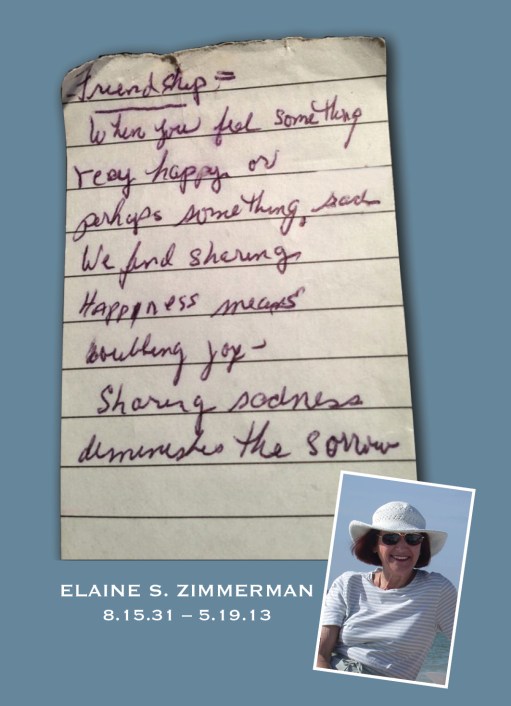 Friendship =
When you feel something
realy happy or
perhaps something sad
We find sharing
Happiness means
doubling joy -
Sharing sadness
diminishes the sorrow
ELAINE S. ZIMMERMAN
8.15.31 – 5.19.13